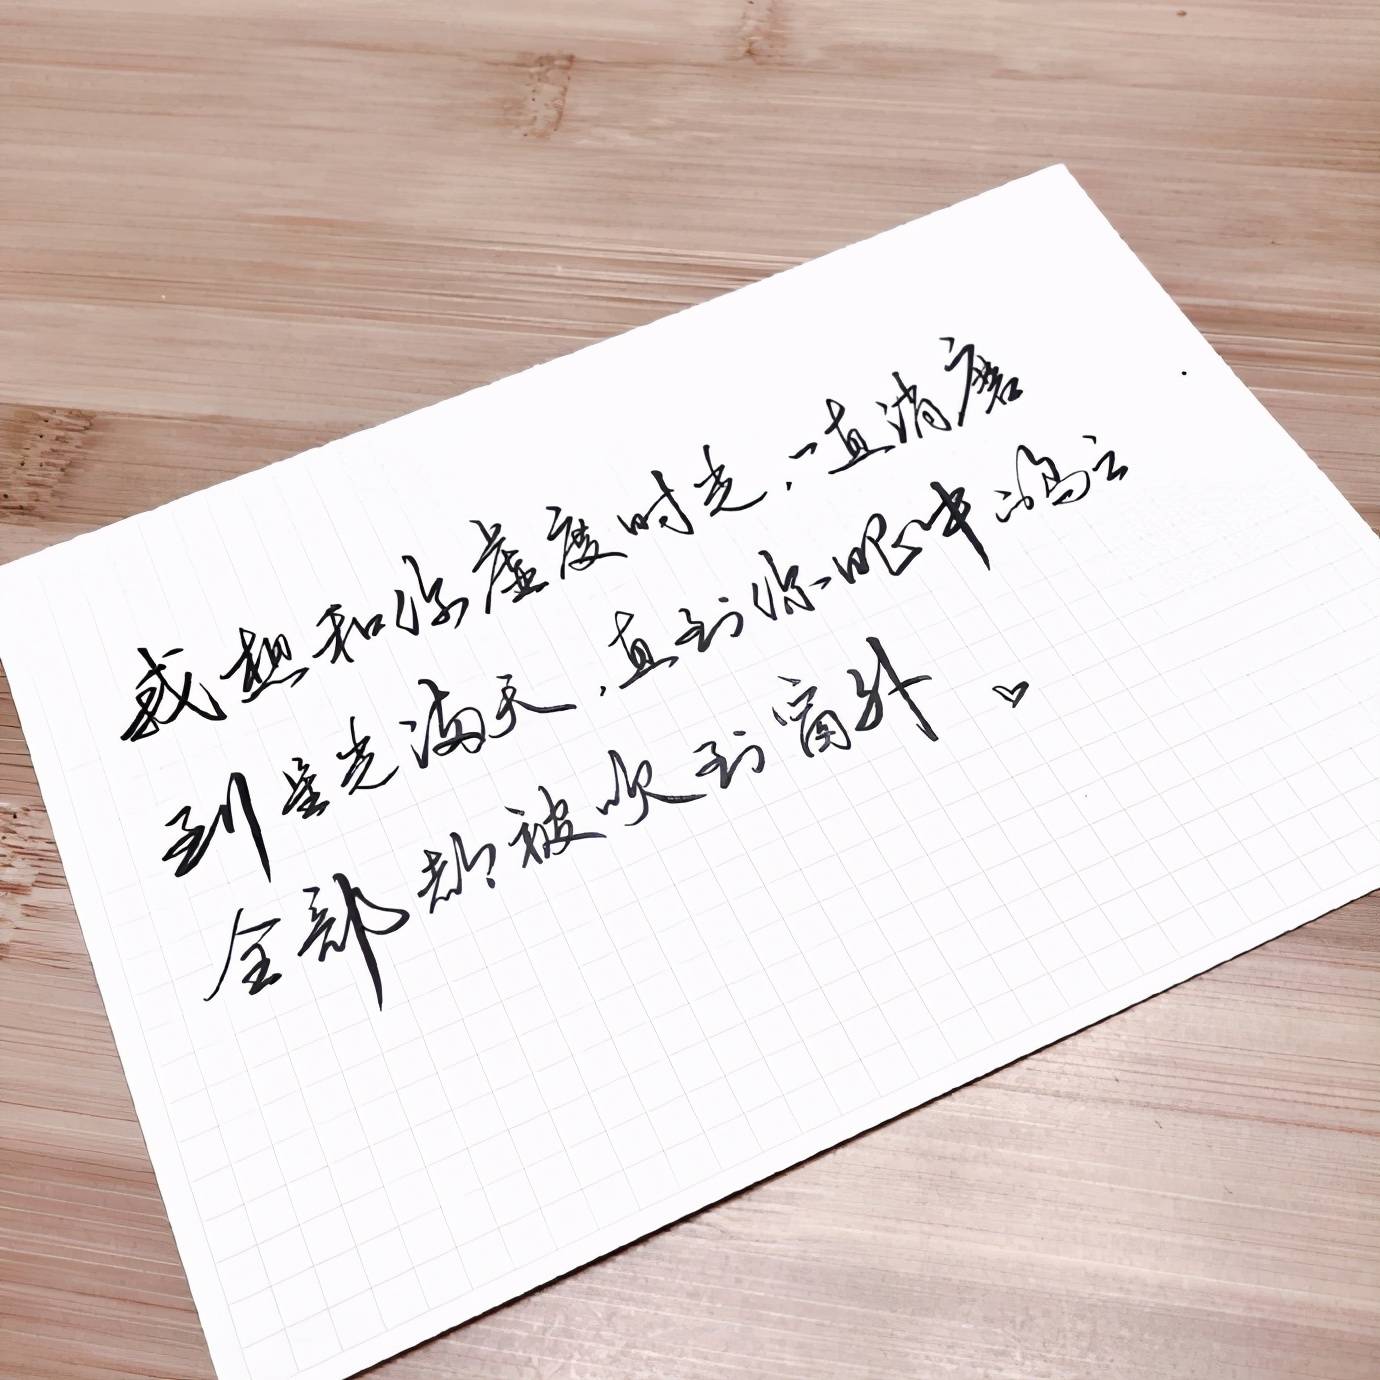 我想和你虚度时光,一直消磨
到星光满天,直到你眼中的乌云
全部都被吹到窗外